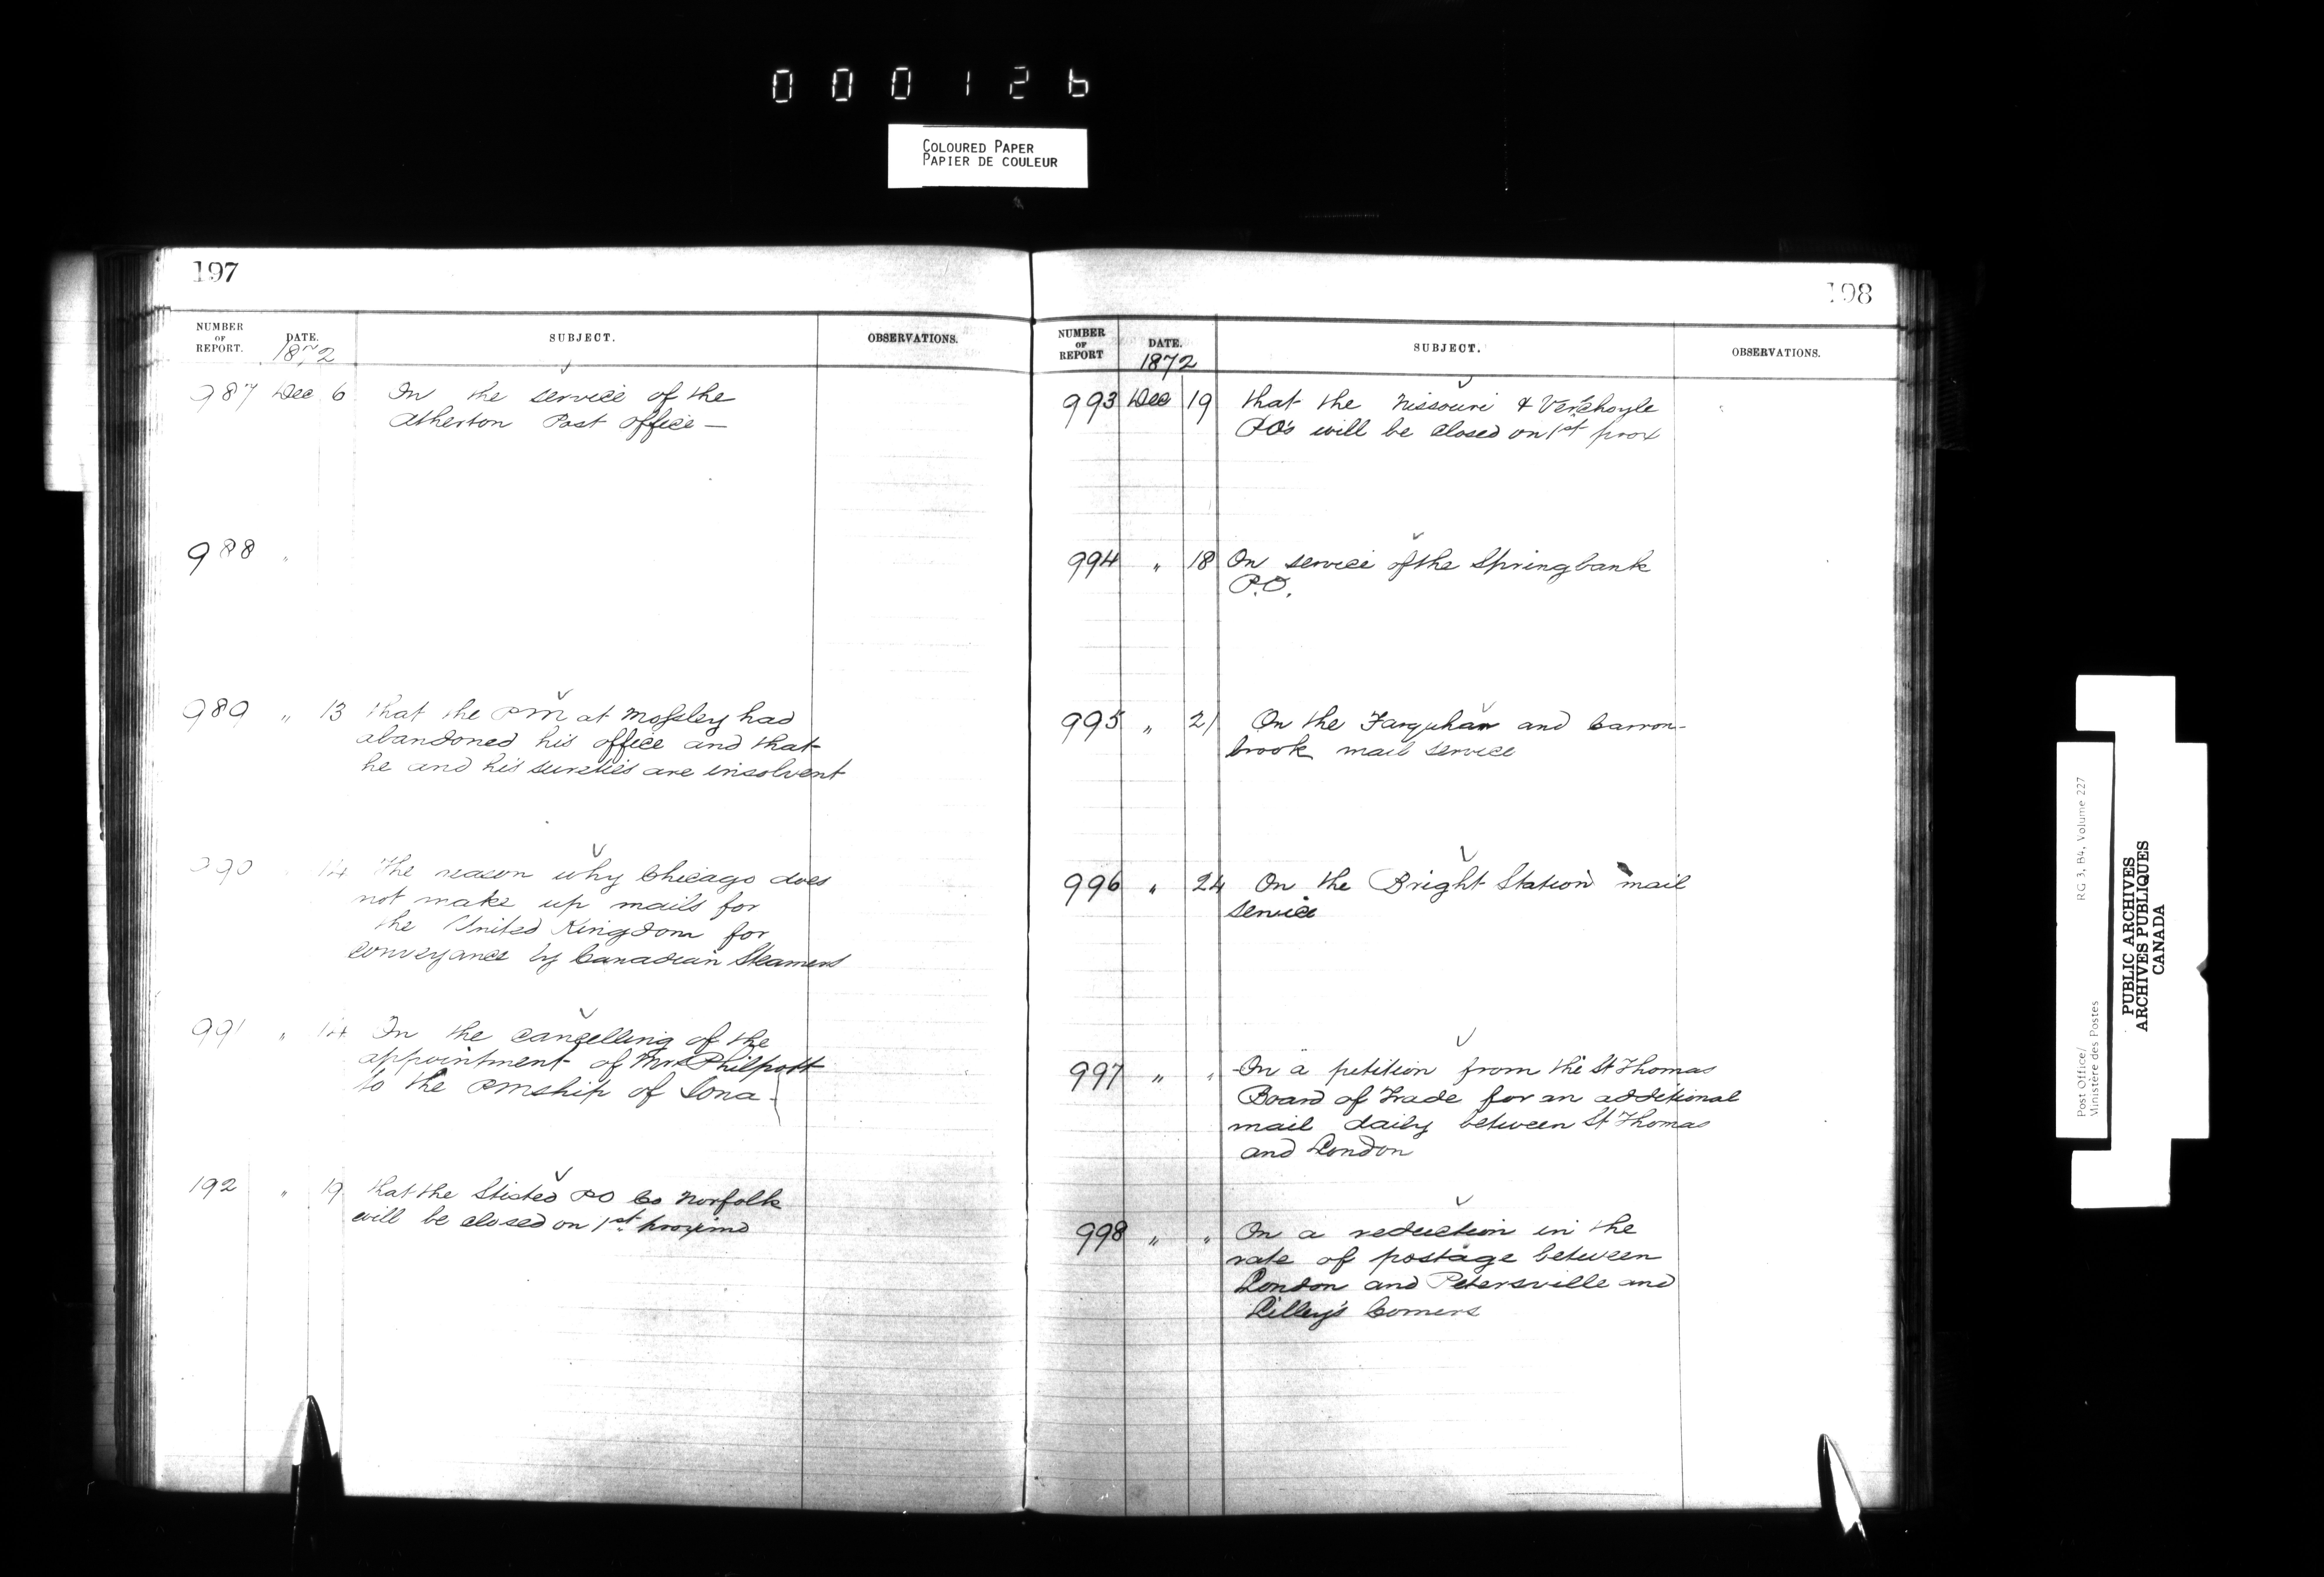 000126
COLOURED PAPER
PAPIER DE COULEUR
197
NUMBER OF REPORT. DATE. SUBJECT. OBSERVATIONS.
1872
987 Dec 6 On the service of the
Atherton Post office —
988 "
989 " 13 that the PM at Mossley had
abandoned his office and that
he and his sureties are insolvent
990 " 14 The reason why Chicago does
not make up mails for
the United Kingdom for
conveyance by Canadian Steamers
991 " 14 On the cancelling of the
appointment of Mr Philpott
to the PMship of Iona -
192 " 19 that the Stisted PO Co Norfolk
will be closed on 1st proximo
198
NUMBER OF REPORT DATE. SUBJECT. OBSERVATIONS.
1872
993 Dec 19 that the Nissouri & Verschoyle
PO's will be closed on 1st prox
994 " 18 On service of the Springbank
P.O.
995 " 21 On the Farquhar and Carron-
brook mail service
996 " 24 On the Bright Station mail
service
997 " " On a petition from the St Thomas
Board of Trade for an additional
mail daily between St Thomas
and London
998 " " On a reduction in the
rate of postage between
London and Petersville and
Lilley's Corners
Post Office/ RG 3, B4, Volume 227
Ministère des Postes
PUBLIC ARCHIVES
ARCHIVES PUBLIQUES
CANADA